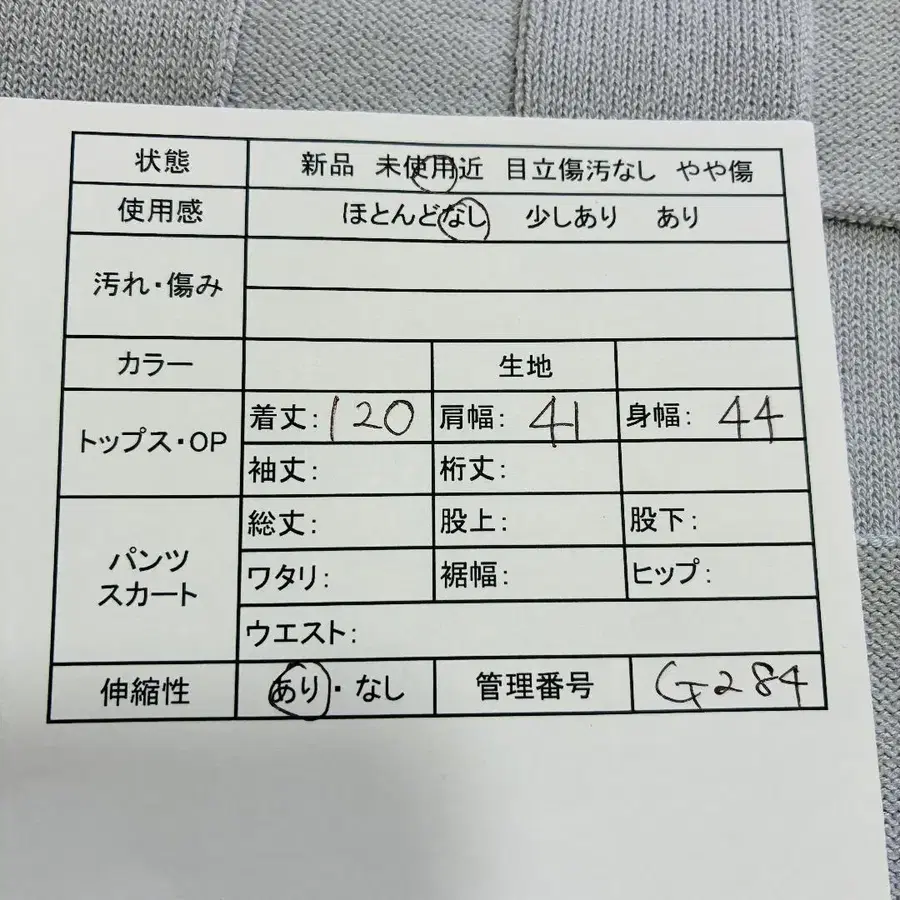 状態 新品 未使用近 目立傷汚なし やや傷
使用感 ほとんどなし 少しあり あり
汚れ・傷み
カラー 生地
トップス・OP 着丈: 120 肩幅: 41 身幅: 44
袖丈: 裄丈:
パンツ スカート 総丈: 股上: 股下:
ワタリ: 裾幅: ヒップ:
ウエスト:
伸縮性 あり・なし 管理番号 G284